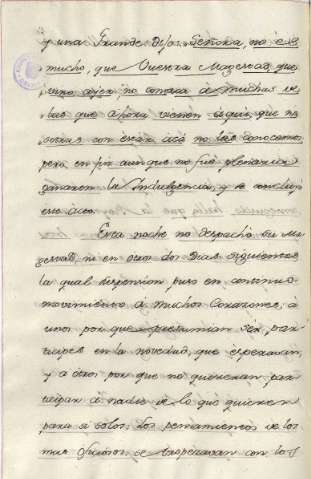 y una Grande dijo: Señora, no es
mucho, que Vuestra Magestad, que
vino ayer no conozca á muchas de
las que ahora vienen aqui, que no
sotras con estar acá no las conocemos
pero en fin aunque no fue plenaria
ganaron la Indulgencia, y se concluyó
este acto.
Esta noche no despachó Su Ma
gestad, ni en otros dos dias siguientes
la qual disposicion puso en continuo
movimiento á muchos Corazones; á
unos por que presumian ser par
ticipes en la novedad, que esperaban,
y a otros por que no quisieran par
ticipar á nadie de lo que quieren
para sí solos. Los pensamientos de los
mas se tropezaban con los